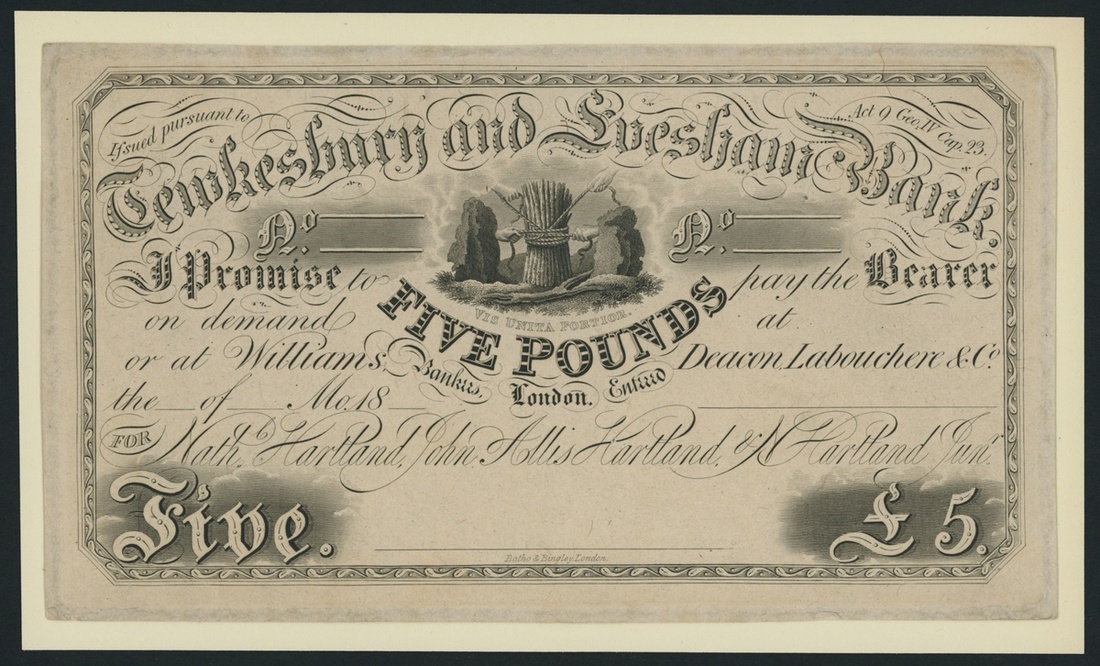 Issued pursuant to Act 9 Geo. IV Cap. 23.
Tewkesbury and Evesham Bank.
No. No.
I Promise to pay the Bearer
VIS UNITA FORTIOR.
FIVE POUNDS
on demand at
or at Williams, Deacon, Labouchere & Co.
Bankers, London. Entered
the of Mo. 18
FOR Nathl. Hartland, John Allis Hartland, & N Hartland Junr.
Five. £5.
Batho & Bingley, London.